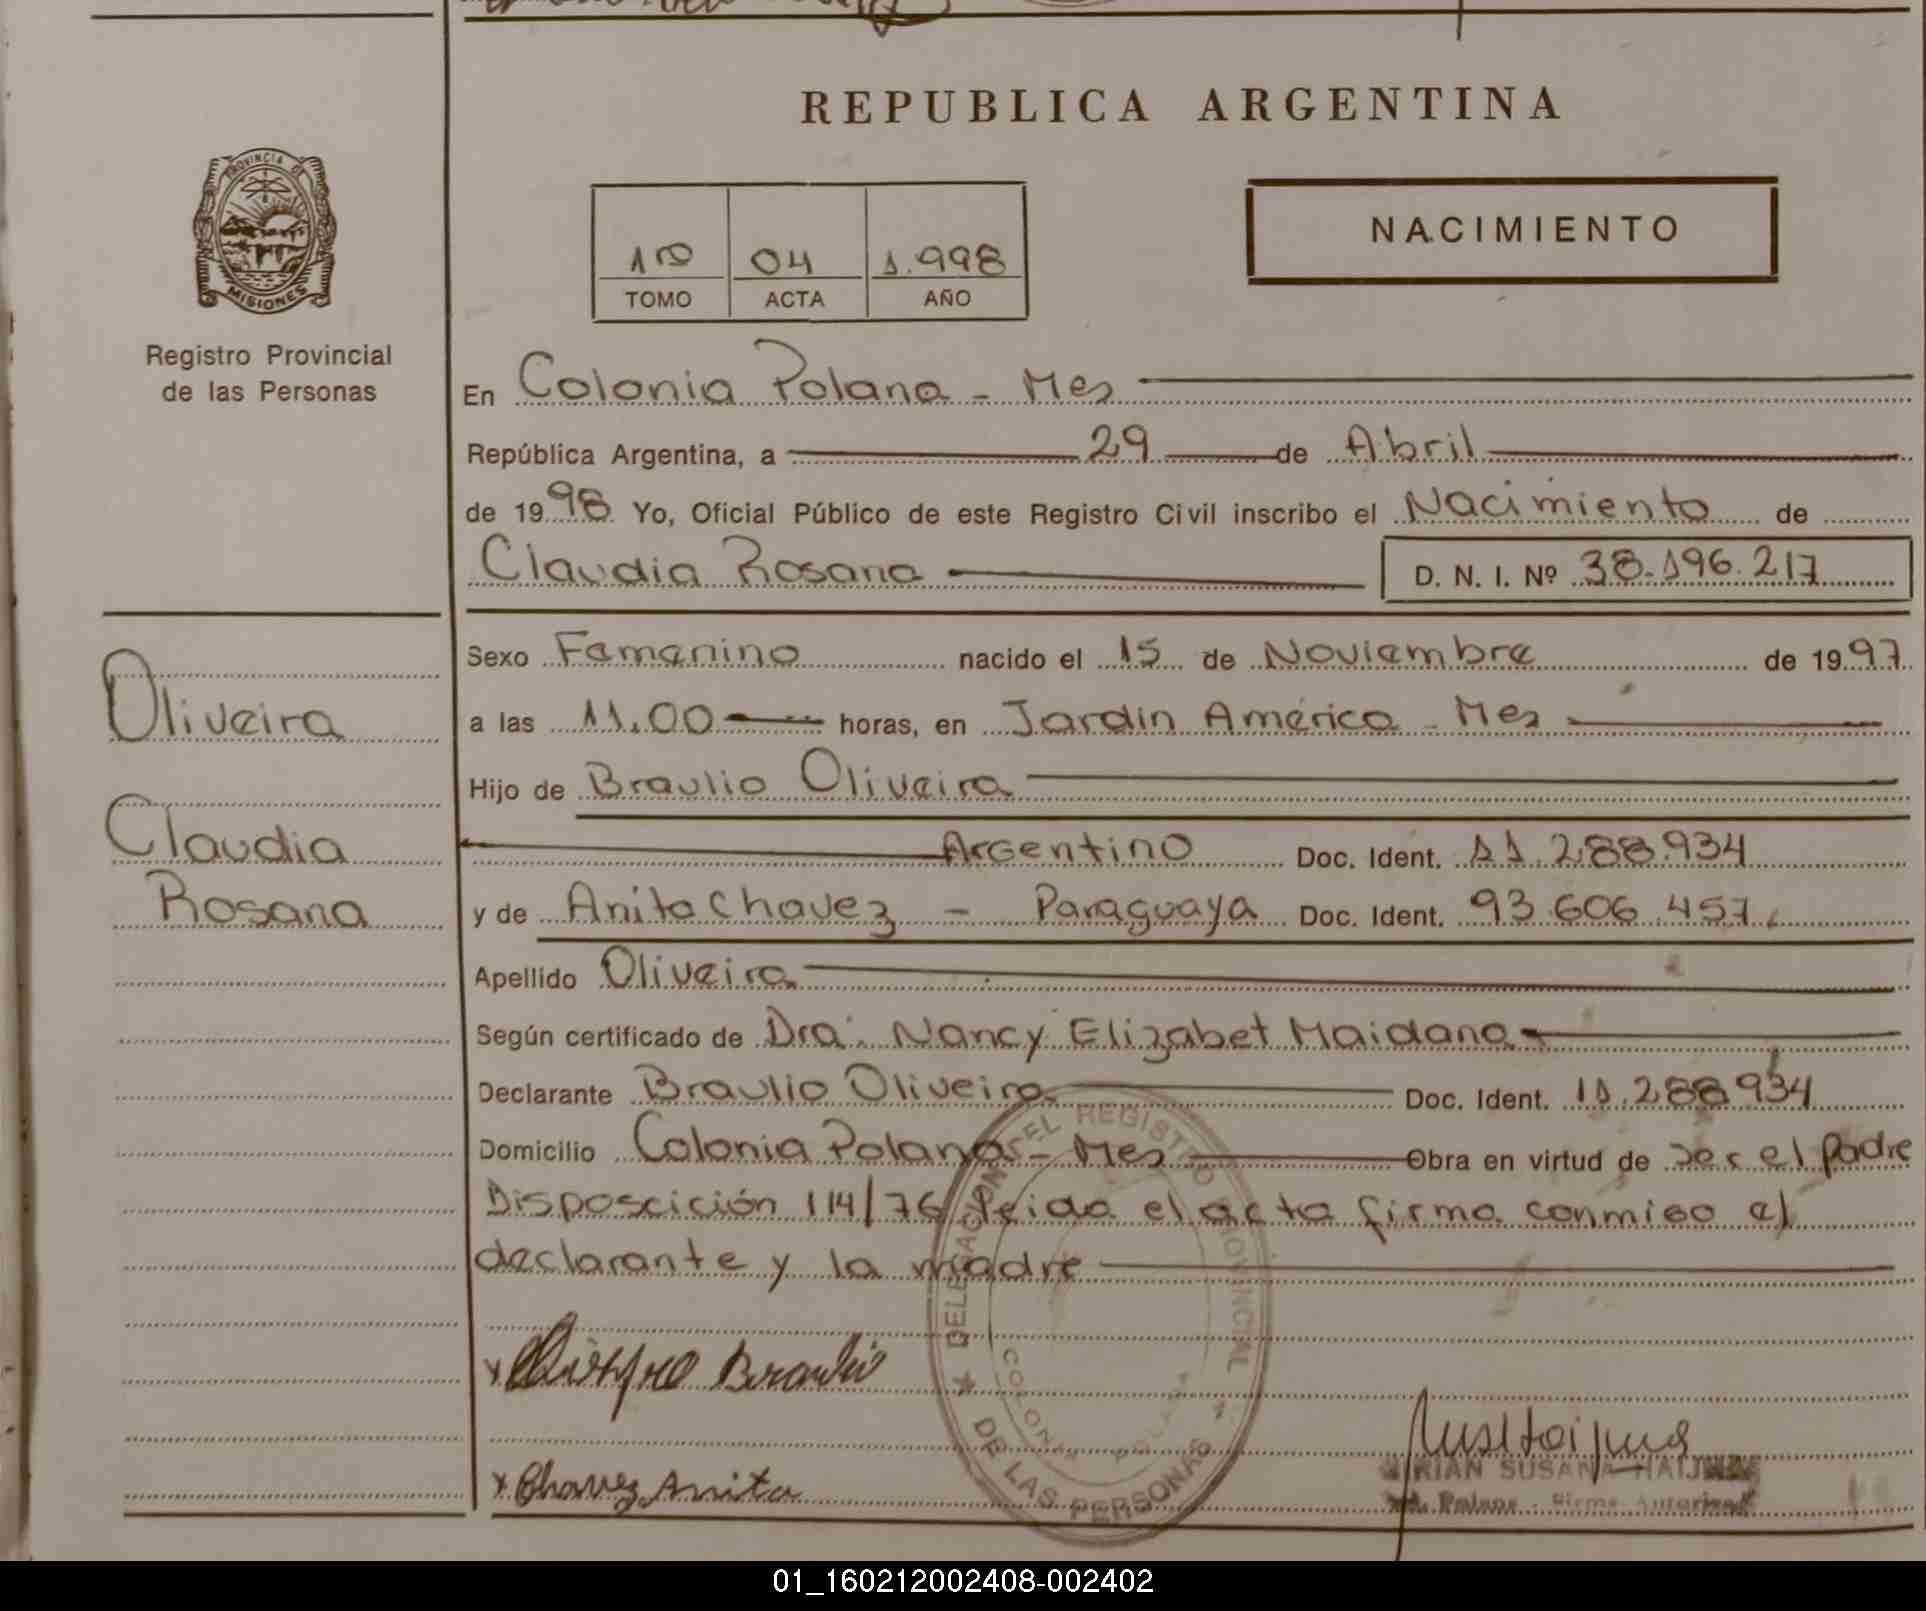 REPUBLICA ARGENTINA
PROVINCIA DE
MISIONES
Registro Provincial
de las Personas
1º 04 1.998
TOMO ACTA AÑO
NACIMIENTO
En Colonia Polana - Mes
República Argentina, a 29 de Abril
de 1998 Yo, Oficial Público de este Registro Civil inscribo el Nacimiento de
Claudia Rosana D. N. I. Nº 38.196.217
Oliveira
Claudia
Rosana
Sexo Femenino nacido el 15 de Noviembre de 1997
a las 11.00 horas, en Jardin América - Mes
Hijo de Braulio Oliveira
Argentino Doc. Ident. 11.288.934
y de Anita Chavez - Paraguaya Doc. Ident. 93.606.457
Apellido Oliveira
Según certificado de Dra. Nancy Elizabet Maidana
Declarante Braulio Oliveira Doc. Ident. 11.288.934
Domicilio Colonia Polana - Mes Obra en virtud de ser el padre
Disposcición 114/76 leida el acta firma conmigo el
declarante y la madre
DELEGACION DEL REGISTRO PROVINCIAL
DE LAS PERSONAS
COLONIA POLANA
Braulio
Chavez Anita
SUSANA
Polana - Firma Autorizad
01_160212002408-002402